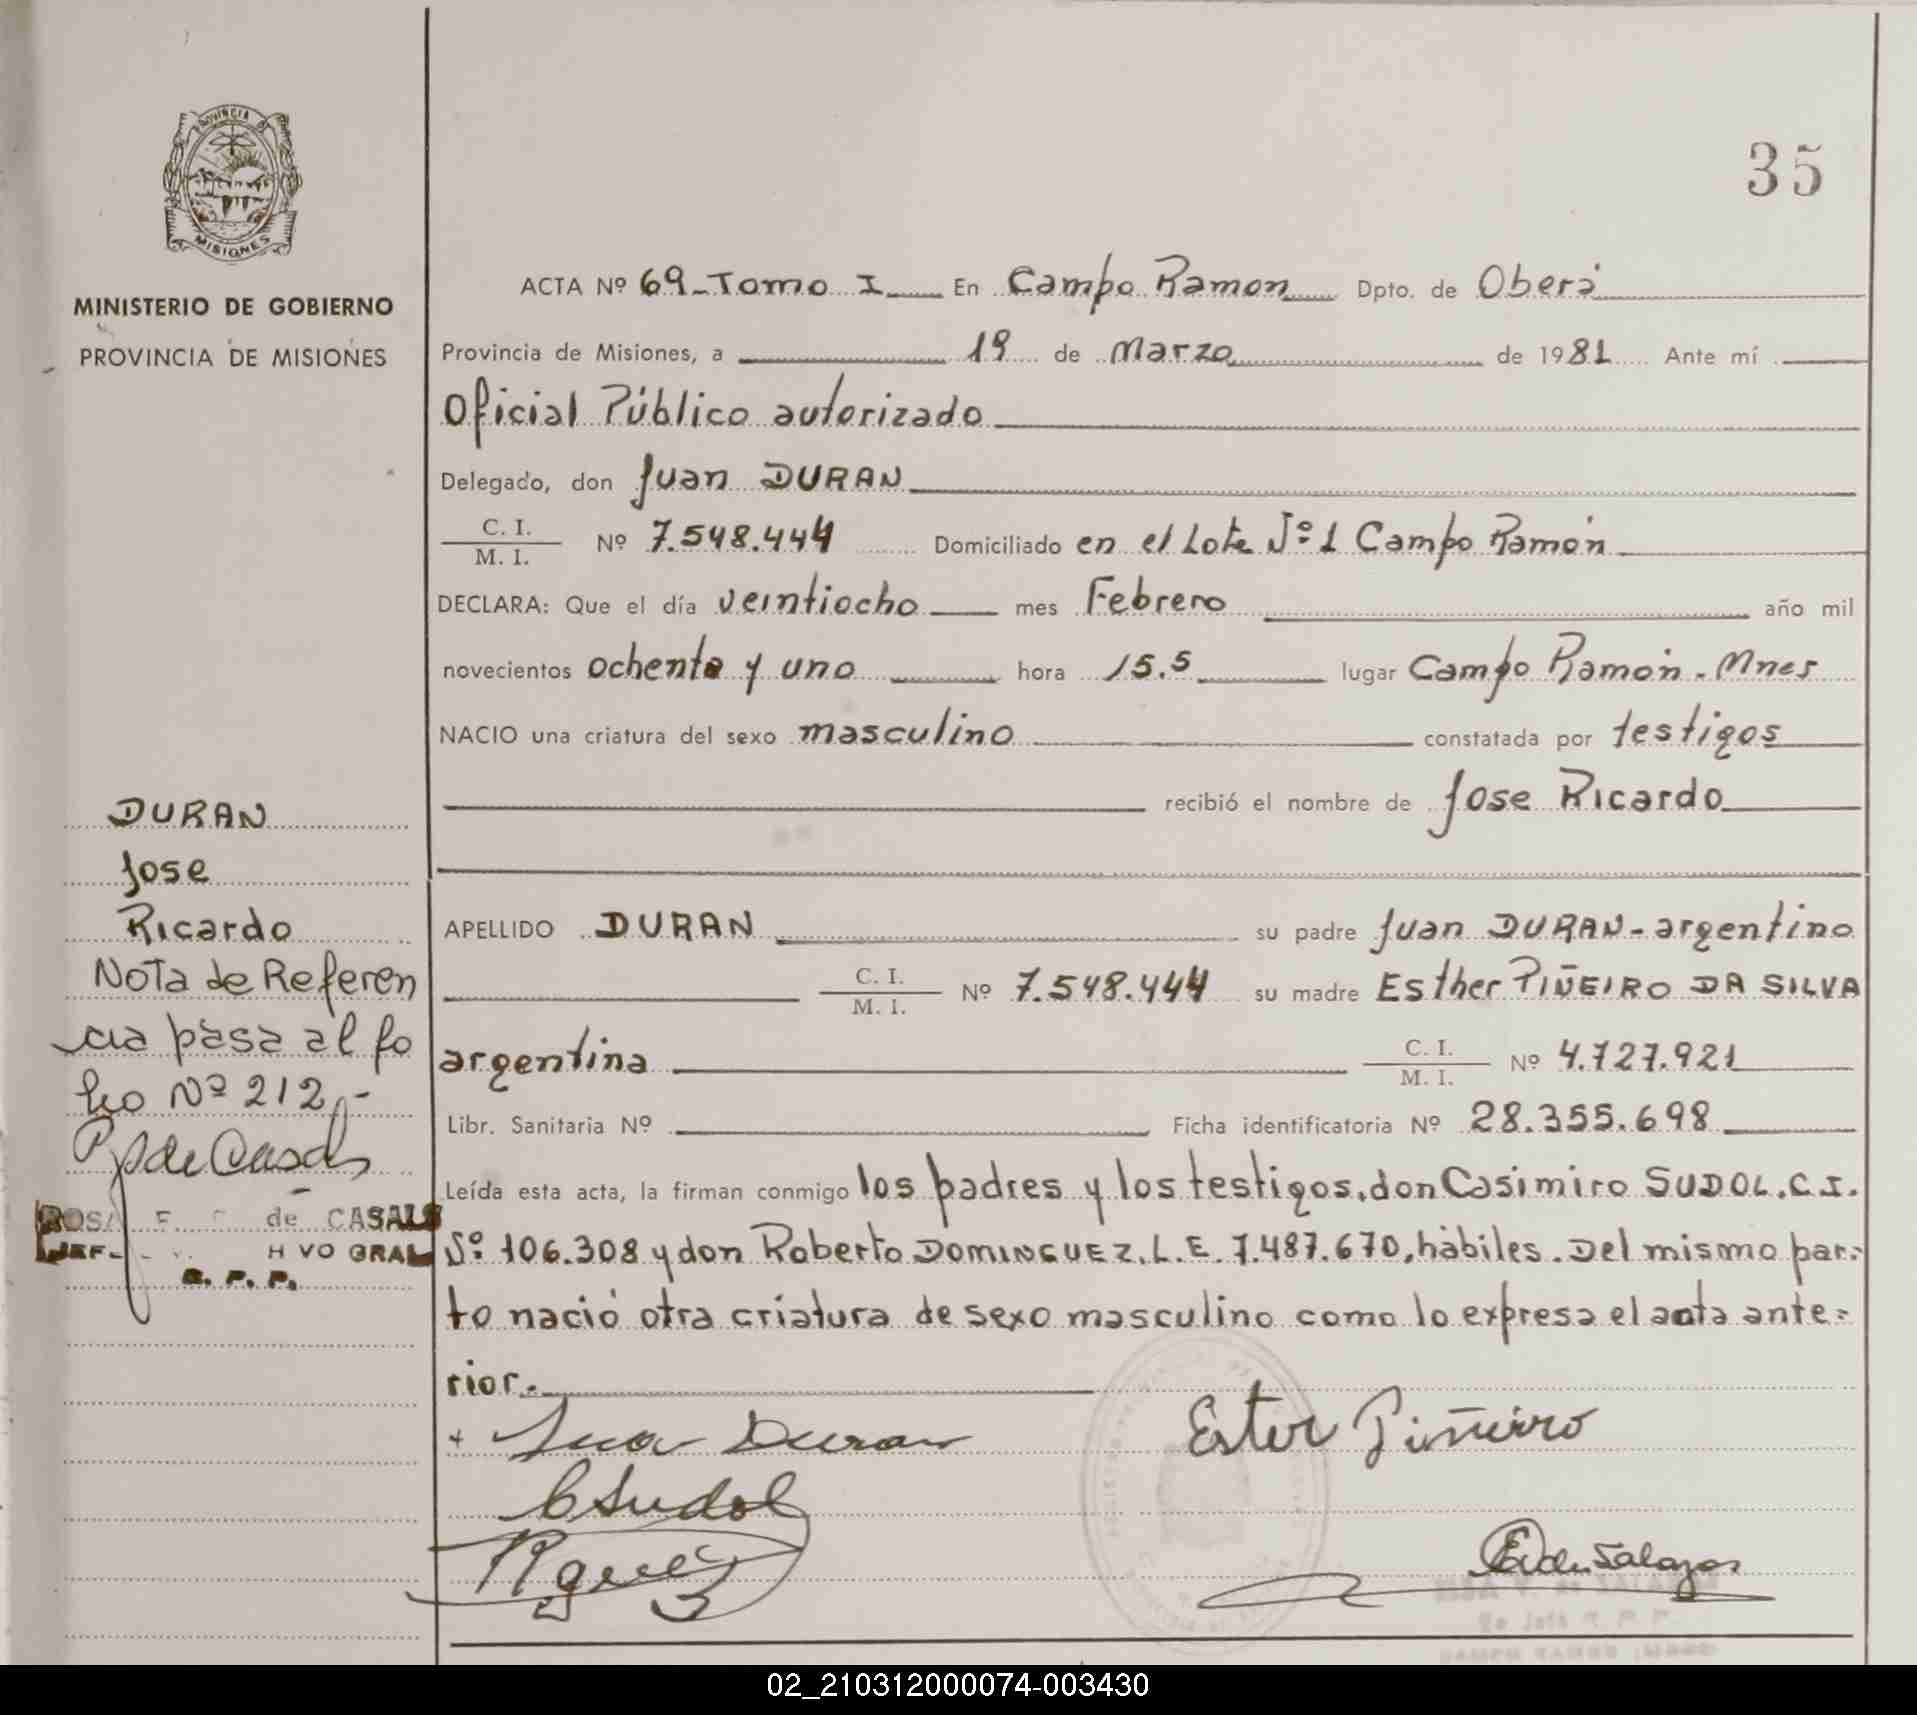 PROVINCIA DE
MISIONES
MINISTERIO DE GOBIERNO
PROVINCIA DE MISIONES
35
ACTA Nº 69-Tomo I En Campo Ramon Dpto. de Oberá
Provincia de Misiones, a 19 de Marzo de 1981 Ante mí
Oficial Público autorizado
Delegado, don Juan DURAN
C. I.
M. I. Nº 7.548.444 Domiciliado en el Lote Nº 1 Campo Ramón
DECLARA: Que el día veintiocho mes Febrero año mil
novecientos ochenta y uno hora 15.5 lugar Campo Ramón. Mnes
NACIO una criatura del sexo masculino constatada por testigos
recibió el nombre de Jose Ricardo
APELLIDO DURAN su padre Juan DURAN-argentino
C. I.
M. I. Nº 7.548.444 su madre Esther PIÑEIRO DA SILVA
argentina C. I.
M. I. Nº 4.727.921
Libr. Sanitaria Nº Ficha identificatoria Nº 28.355.698
Leída esta acta, la firman conmigo los padres y los testigos, don Casimiro SUDOL. C. I.
Nº 106.308 y don Roberto DOMINGUEZ. L. E. 7.487.670, hábiles. Del mismo par=
to nació otra criatura de sexo masculino como lo expresa el acta ante=
rior.
+ Juan Duran Ester Piñeiro
C Sudol
DURAN
Jose
Ricardo
Nota de Referen
cia pasa al fo
lio Nº 212.-
de CASALS
GRAL
02_210312000074-003430